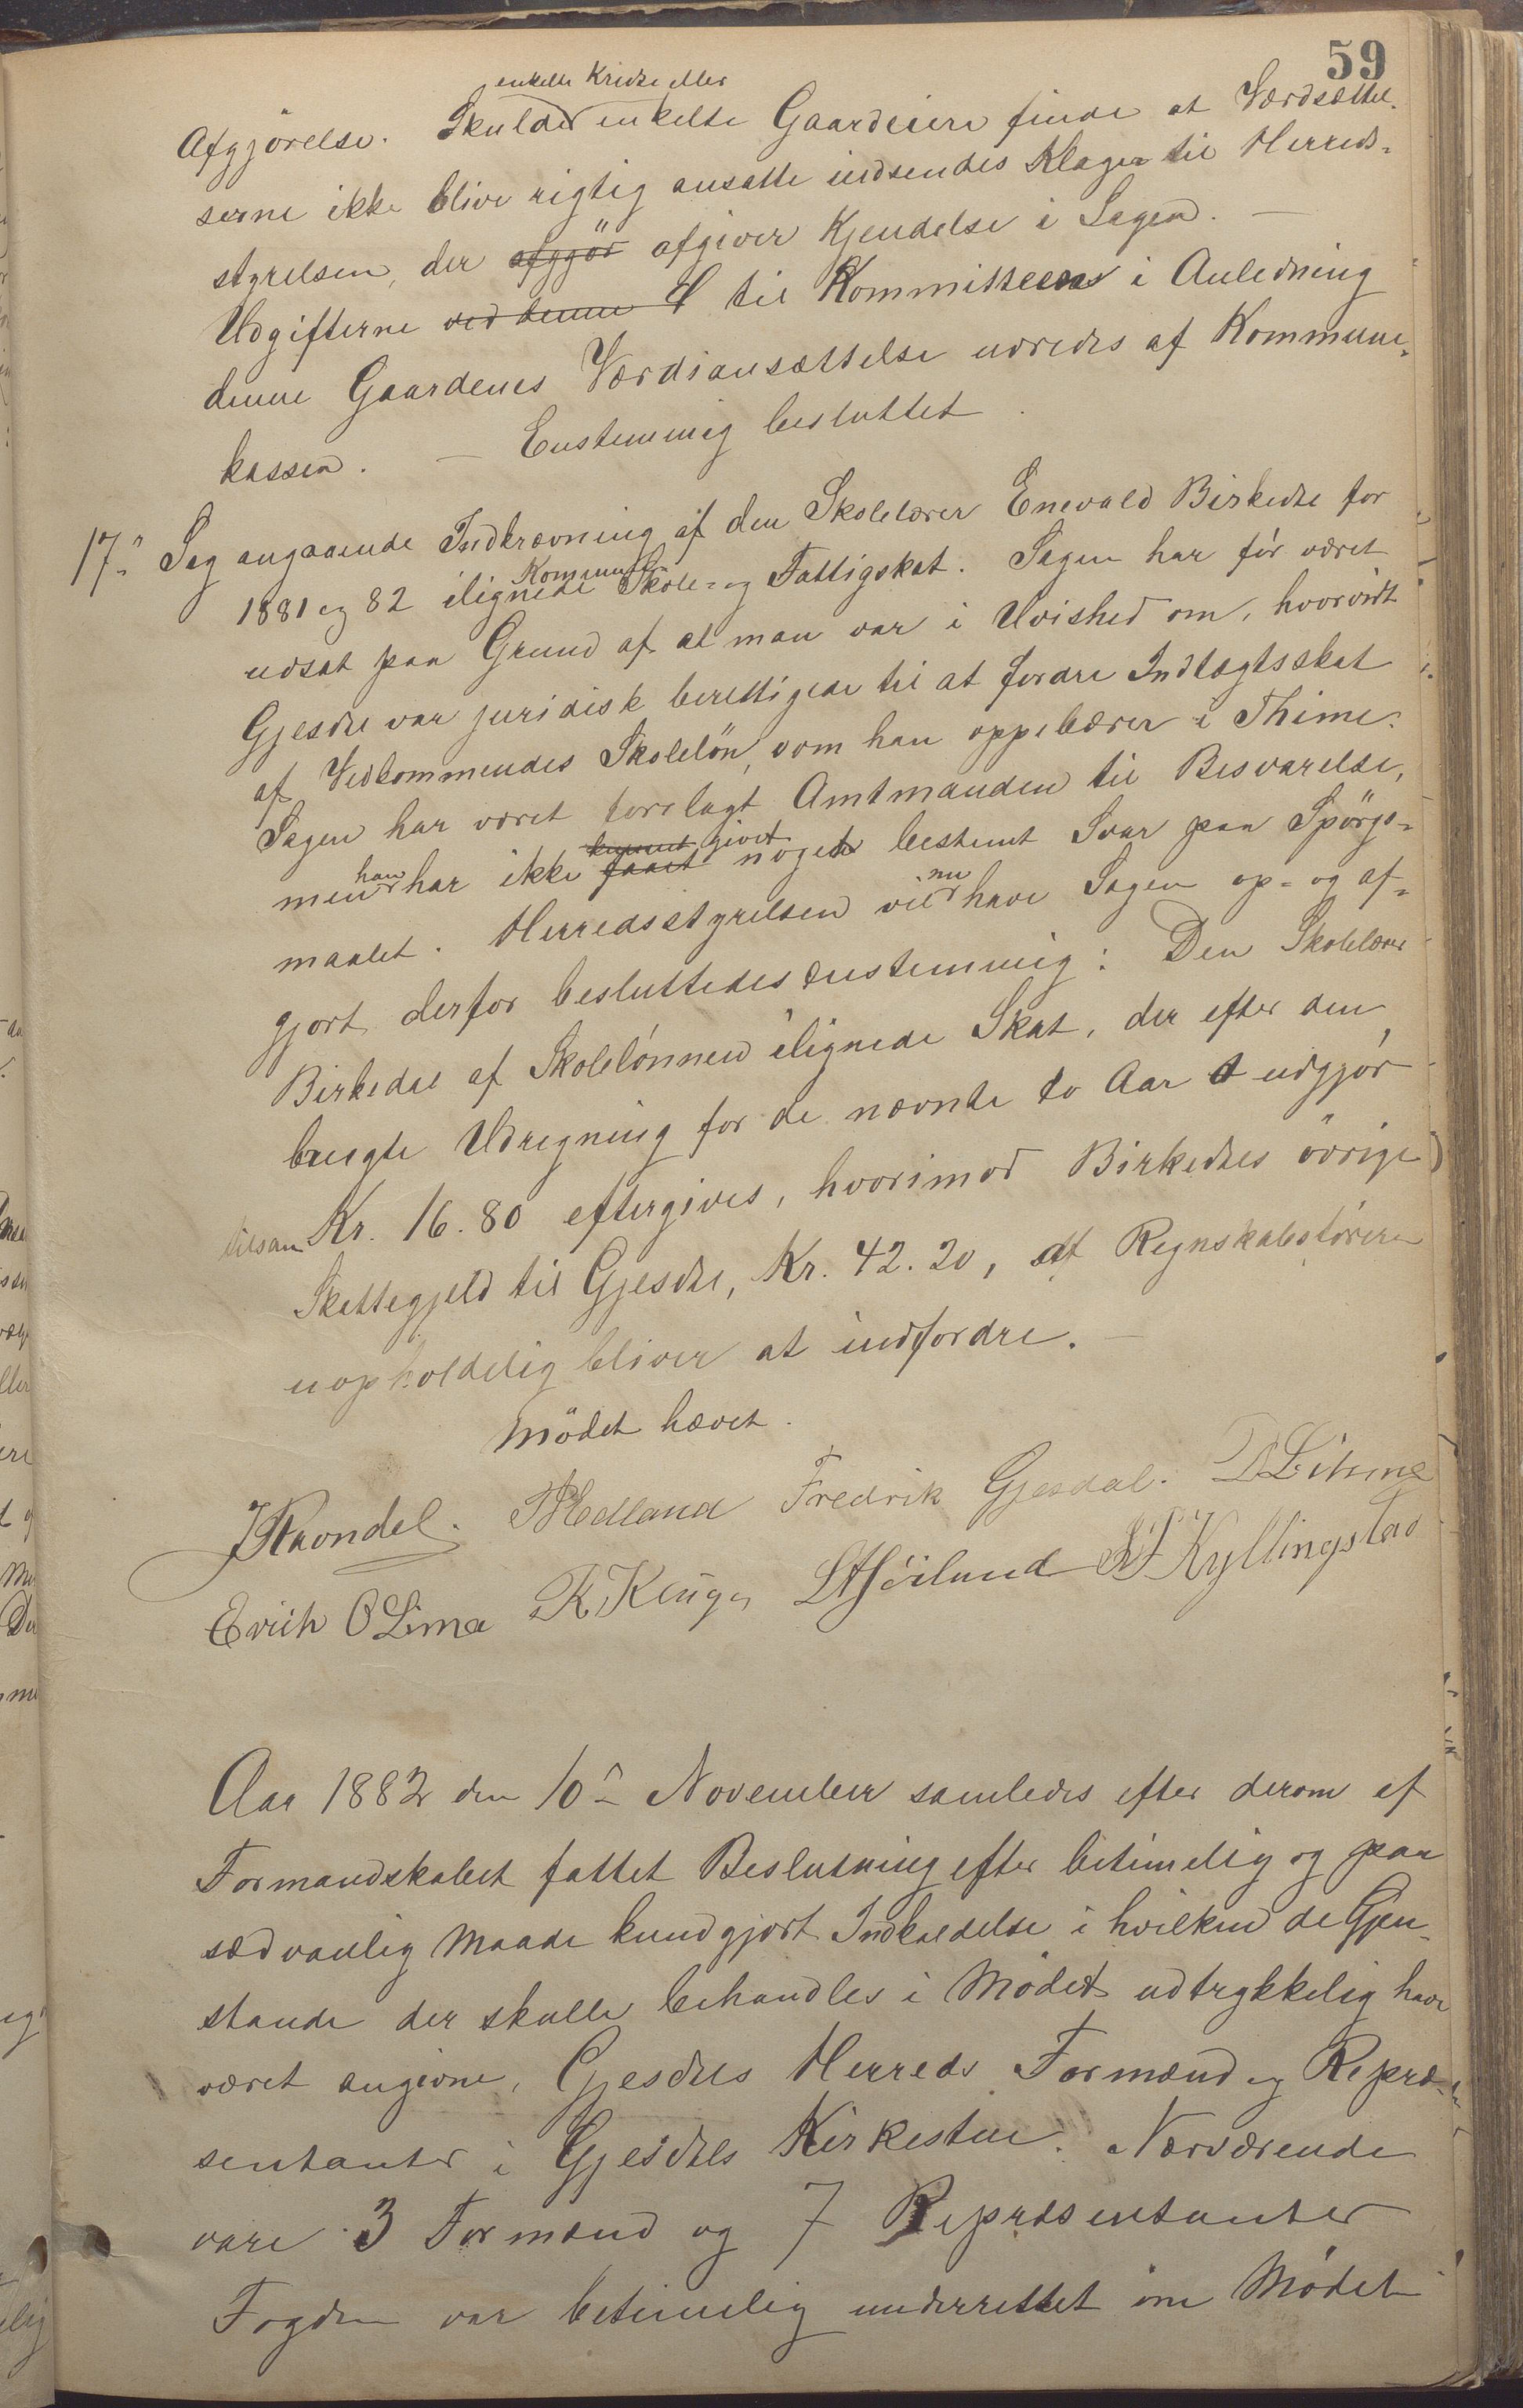 59
enkelte Kredse eller
Afgjörelse. Skulde enkelte Gaardeiere finde at Værdsættel-
serne ikke blive rigtig ansatte indsendes Klager til Herreds-
styrelsen, der afgjör afgiver Kjendelse i Sagen. —
Udgifterne ved denne S til Kommitteens i Anledning
denne Gaardenes Værdiansættelse udredes af Kommune-
kassen. — Enstemmig besluttet.
17. Sag angaaende Indkrævning af den Skolelærer Enevald Birkedal for
Kommune
1881 og 82 ilignede Skole- og Fattigskat. Sagen har för været
udsat paa Grund af at man var i Uvished om, hvorvidt
Gjesdal var juridisk berettigede til at fordre Indtægtsskat
af Vedkommendes Skolelön, som han oppebærer i Thime.
Sagen har været forelagt Amtmanden til Besvarelse,
kunnet givet
men han har ikke faaet noget bestemt Svar paa Spörgs-
maalet. Herredsstyrelsen vil nu have Sagen op- og af-
gjort derfor besluttedes enstemmig: Den Skolelærer
Birkedal af Skolelönnen ilignede Skat, der efter den
brugte Udregning for de nævnte to Aar udgjör
tilsam Kr. 16.80 eftergives, hvorimod Birkedals övrige
Skattegjeld til Gjesdal, Kr. 42.20, af Regnskabsföreren
uopholdelig bliver at indfordre. —
Mödet hævet.
Fredrik Gjesdal. D Lihme
Erich O Lima Kyllingstad
Aar 1882 den 10 November samledes efter derom af
Formandskabet fattet Beslutning efter betimelig og paa
sædvanlig Maade kundgjort Indkaldelse i hvilken de Gjen-
stande der skulle behandles i Mödet udtrykkelig have
været angivne, Gjesdals Herreds Formænd og Repræ-
sentanter i Gjesdals Kirkestue. Nærværende
vare 3 Formænd og 7 Repræsentanter
Fogden var betimelig underrettet om Mödet